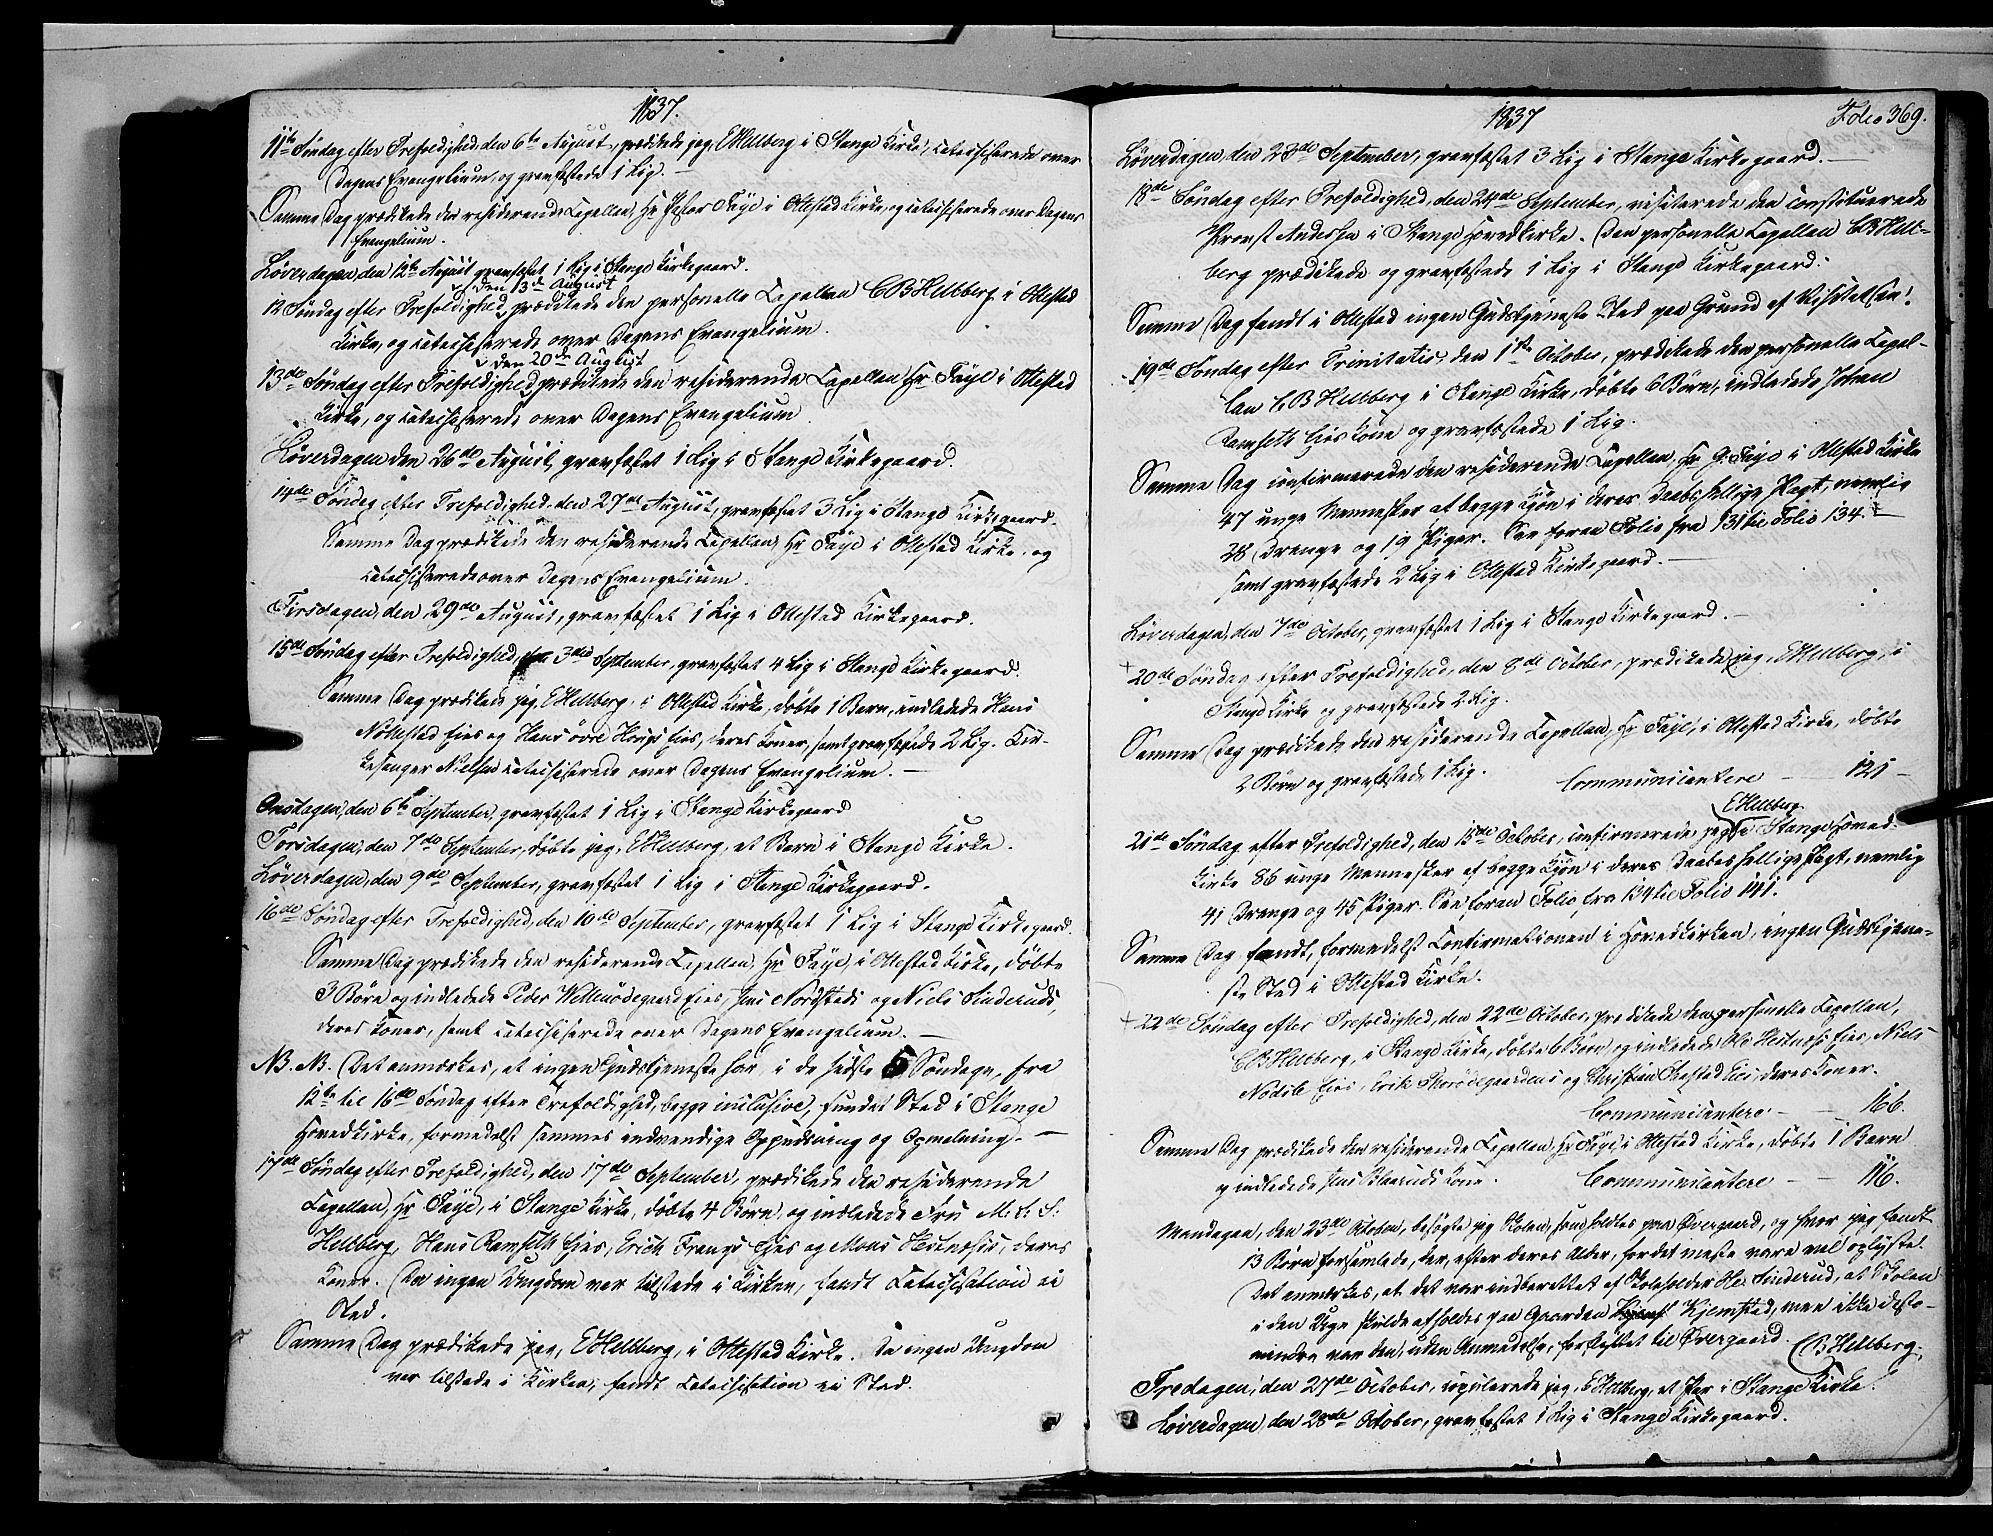 1837.
11te Søndag efter Trefoldighed, den 6te August, prædikede jeg, E Hellberg i Stange Kirke, catechiserede over
Dagens Evangelium, og gravfæstede 1 Lig. —
Samme Dag prædikede den residerende Capellan, Hr Pastor Faÿe i Ottestad Kirke, og catechiserede over Dagens
Evangelium.
Løverdagen, den 12te August gravfæstet 1 Lig i Stange Kirkegaard.
den 13de August
12 Søndag efter Trefoldighed, prædikede den personelle Capellan C B Hellberg i Ottestad
Kirke, og catechiserede over Dagens Evangelium.
den 20de August
13de Søndag efter Trefoldighed prædikede den residerende Capellan, Hr Faÿe i Ottestad
Kirke, og catechiserede over Dagens Evangelium.
Løverdagen den 26de August, gravfæstet 1 Lig i Stange Kirkegaard.
14de Søndag efter Trefoldighed, den 27de August, gravfæstet 3 Lig i Stange Kirkegaard.
Samme Dag prædikede den residerende Capellan, Hr Faÿe i Ottestad Kirke, og
catechiserede over Dagens Evangelium.
Tirsdagen, den 29de August, gravfæstet 1 Lig i Ottestad Kirkegaard.
15de Søndag efter Trefoldighed, den 3die September, gravfæstet 4 Lig i Stange Kirkegaard.
Samme Dag prædikede jeg, E Hellberg, i Ottestad Kirke, døbte 1 Barn, indledede Hans
Nøttestad Eies og Hans øvre Houges Eies, deres Koner, samt gravfæstede 2 Lig. Kir-
kesanger Nielsen catechiserede over Dagens Evangelium. —
Onsdagen, den 6te September, gravfæstet 1 Lig i Stange Kirkegaard
Torsdagen, den 7de September, døbte jeg, E Hellberg, et Barn i Stange Kirke.
Løverdagen, den 9de September, gravfæstet 1 Lig i Stange Kirkegaard.
16de Søndag efter Trefoldighed, den 10de September, gravfæstet 1 Lig i Stange Kirkegaard.
Samme Dag prædikede den residerende Capellan, Hr Faÿe, i Ottestad Kirke, døbte
3 Børn og indledede Peder Eies, Jens Nordstads og Niels Sinderuds,
deres Koner, samt catechiserede over Dagens Evangelium. —
NB. NB. Det anmærkes, at ingen Gudstjeneste har i de sidste 5 Søndage, fra
12te til 16de Søndag efter Trefoldighed, begge inclusive, fundet Sted i Stange
Hovedkirke, formedelst sammes indvendige Oppudsning og Opmaling. —
17de Søndag efter Trefoldighed, den 17de September, prædikede den residerende
Capellan, Hr Faÿe, i Stange Kirke, døbte 4 Børn, og indledede Fru M. S. S.
Hellberg, Hans Ramseth Eies, Erich Frangs Eies og Mons Hestnæsis, deres
Koner. Da ingen Ungdom var tilstede i Kirken, fandt Catechisation ei
Sted.
Samme Dag prædikede jeg, E Hellberg, i Ottestad Kirke. Da ingen Ungdom
var tilstede i Kirken, fandt Catechisation ei Sted.
1837
Folio 369.
Løverdagen, den 23de September, gravfæstet 3 Lig i Stange Kirkegaard. —
18de Søndag efter Trefoldighed, den 24de September, visiterede den constituerede
Provst Andersen i Stange Hovedkirke. Den personelle Capellan C B Hell-
berg prædikede og gravfæstede 1 Lig i Stange Kirkegaard.
Samme Dag fandt i Ottestad ingen Gudstjeneste Sted paa Grund af Visitatsen.
19de Søndag efter Trinitatis, den 1ste October, prædikede den personelle Capel-
lan C B Hellberg i Stange Kirke, døbte 6 Børn, indledede Johan
Ramseth Eies Kone og gravfæstede 1 Lig.
Samme Dag confirmerede den residerende Capellan, Hr G. Faÿe i Ottestad Kirke
47 unge Mennesker af begge Kjøn i deres Daabs hellige Pagt, nemlig
28 Drenge og 19 Piger. See foran Folio fra 131 til Folio 134. —
samt gravfæstede 2 Lig i Ottestad Kirkegaard. —
Løverdagen, den 7de October, gravfæstet 1 Lig i Stange Kirkegaard. —
20de Søndag efter Trefoldighed, den 8de October, prædikede jeg, E Hellberg, i
Stange Kirke og gravfæstede 2 Lig.
Samme Dag prædikede den residerende Capellan, Hr Faÿe, i Ottestad Kirke, døbte
2 Børn og gravfæstede 1 Lig. Communicantere — 121 —
E Hellberg
21de Søndag efter Trefoldighed, den 15de October, confirmerede jeg i Stange Hoved-
kirke 86 unge Mennesker af begge Kjøn i deres Daabes hellige Pagt, nemlig
41 Drenge og 45 Piger. See foran Folio fra 134 til Folio 141.
Samme Dag fandt, formedelst Confirmationen i Hovedkirken, ingen Gudstjene-
ste Sted i Ottestad Kirke.
22de Søndag efter Trefoldighed, den 22de October, prædikede den personelle Capellan,
C B Hellberg, i Stange Kirke, døbte 6 Børn, og indledede Ole Hestnæss Eies, Niels
Nødsle Eies, Erik Thorødegaardens og Christian Saxstad Eies, deres Koner.
Communicantere — — 166.
Samme Dag prædikede den residerende Capellan, Hr Faÿe, i Ottestad Kirke, døbte 1 Barn
og indledede Jens Blaaruds Kone. Communicantere — — 116.
Mandagen, den 23de October, besøgte jeg Skolen, som holdtes paa Tvergaard, og hvor jeg fandt
13 Børn forsamlede, der, efter deres Alder, for det meste vare vel oplyste.
Det anmærkes, at det var indberettet af Skoleholder Hr Sinderud, at Skolen
i den Uge skulde afholdes paa Gaarden Kjemstad, men ikke desto-
mindre var den, uden Anmeldelse, forflyttet til Tvergaard. C B Hellberg.
Fredagen, den 27de October, copulerede jeg, E Hellberg, et Par i Stange Kirke.
Løverdagen, den 28de October, gravfæstet 1 Lig i Stange Kirkegaard.